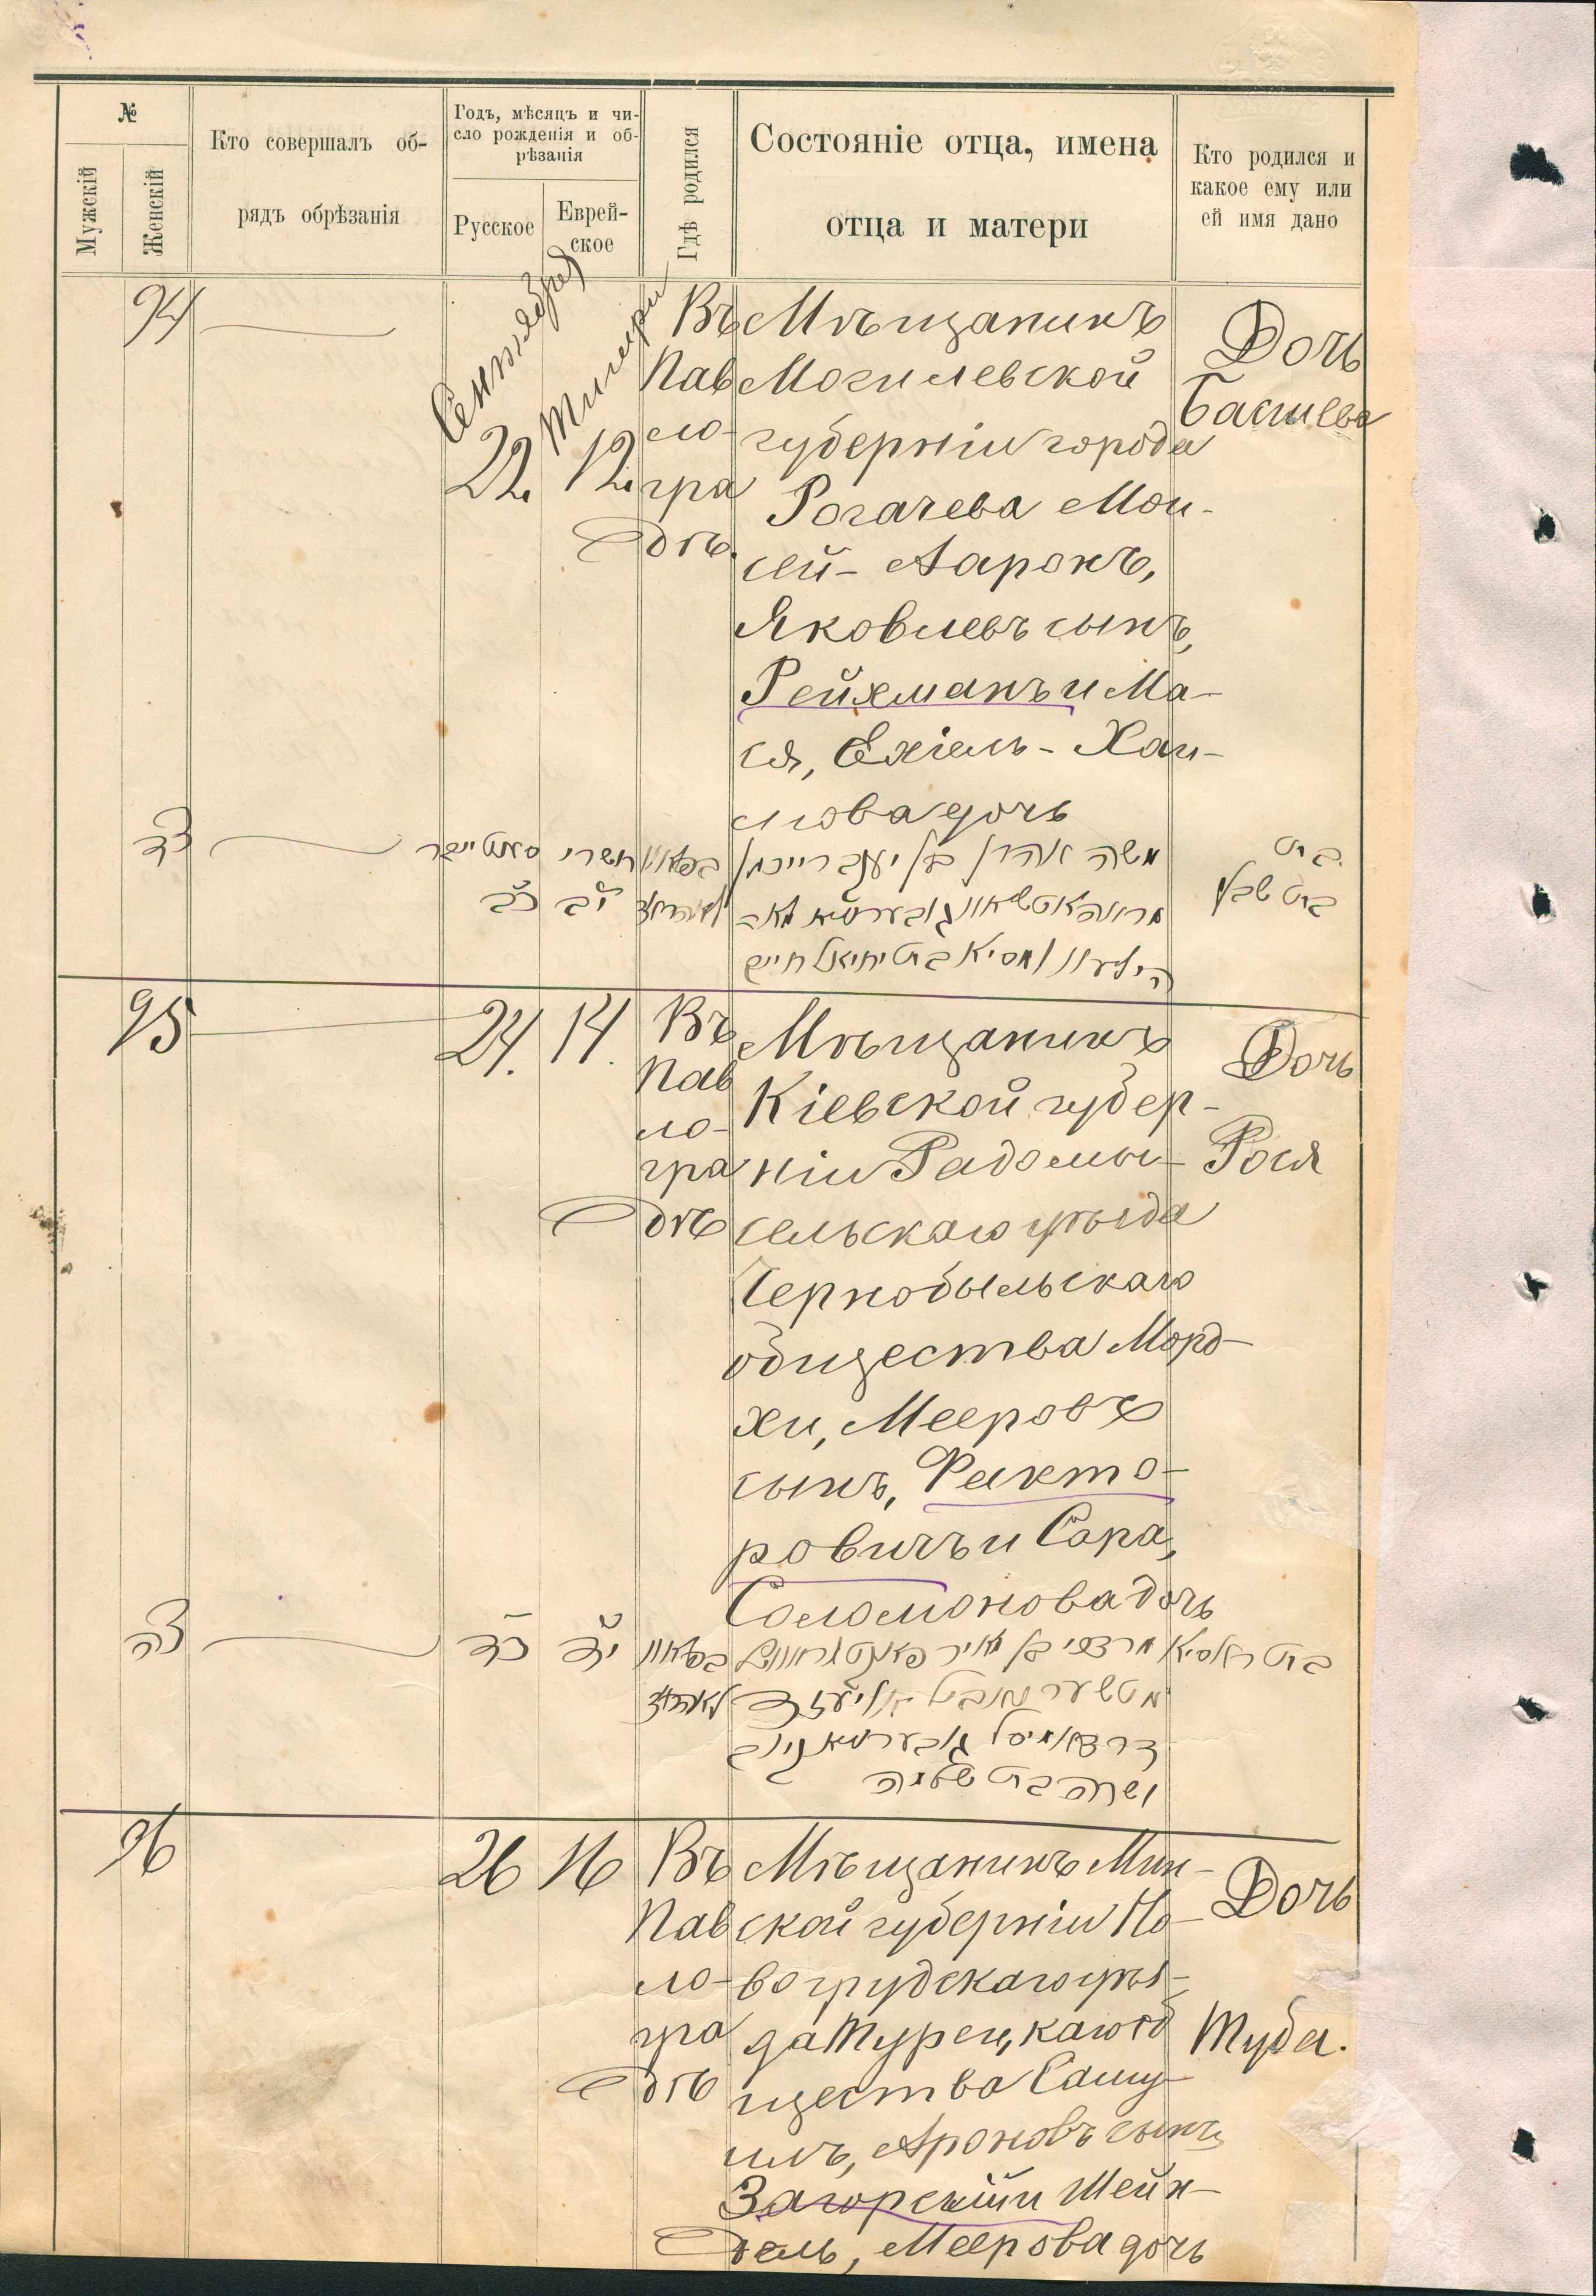 №
Мужскій
Женскій
Кто совершалъ об-
рядъ обрѣзанія
Годъ, мѣсяцъ и чи-
сло рожденія и об-
рѣзанія
Русское
Еврей-
ское
Гдѣ родился
Состояніе отца, имена
отца и матери
Кто родился и
какое ему или
ей имя дано
94
Сентября
22.
Тишри
12.
Въ
Пав
ло-
гра
дѣ.
Мѣщанинъ
Могилевской
губерніи города
Рогачева Мои-
сей-Ааронъ,
Яковлевъ сынъ,
Рейхманъ и Ма-
ся, Ехіель-Хаи-
мова дочь
Дочь
Басшева
צד
סעפטיабר
תשרי
כב
יב
משה אהרן בן יעקב רייכמן
בת
בת שבע
95
24.
14.
Въ
Пав
ло-
гра
дѣ
Мѣщанинъ
Кіевской губер-
ніи Радомы-
сельскаго уѣзда
Чернобыльскаго
общества Морд-
хи, Мееровъ
сынъ, Факто-
ровичъ и Сара,
Соломонова дочь
Дочь
Рося
צה
כד
יד
ושרה בת שלמה
96
26
16
Въ
Пав
ло-
гра
дѣ
Мѣщанинъ Мин-
ской губерніи Но-
вогрудскаго уѣз-
да Турецкаго об
щества Саму-
илъ, Ароновъ сынъ
Загорскій и Шейн-
дель, Меерова дочь
Дочь
Туба.